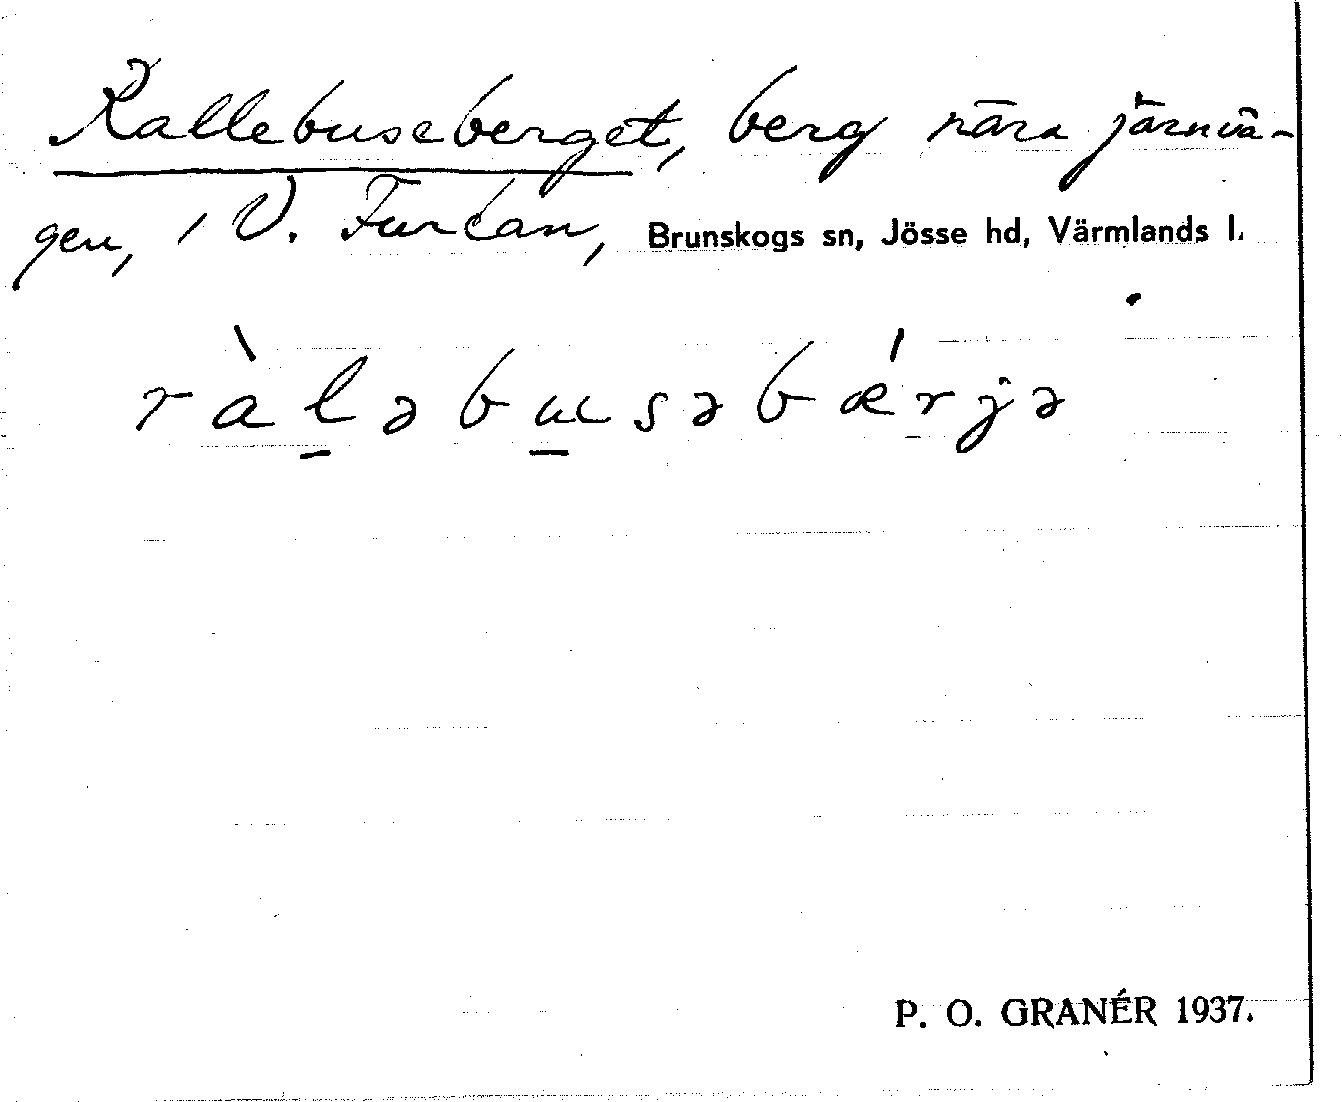 Rallebuseberget, berg nära järnvä-
gen, i V. Furtan, Brunskogs sn, Jösse hd, Värmlands l.
ràl̠əbu̠səbǽrjə
P. O. GRANÉR 1937.